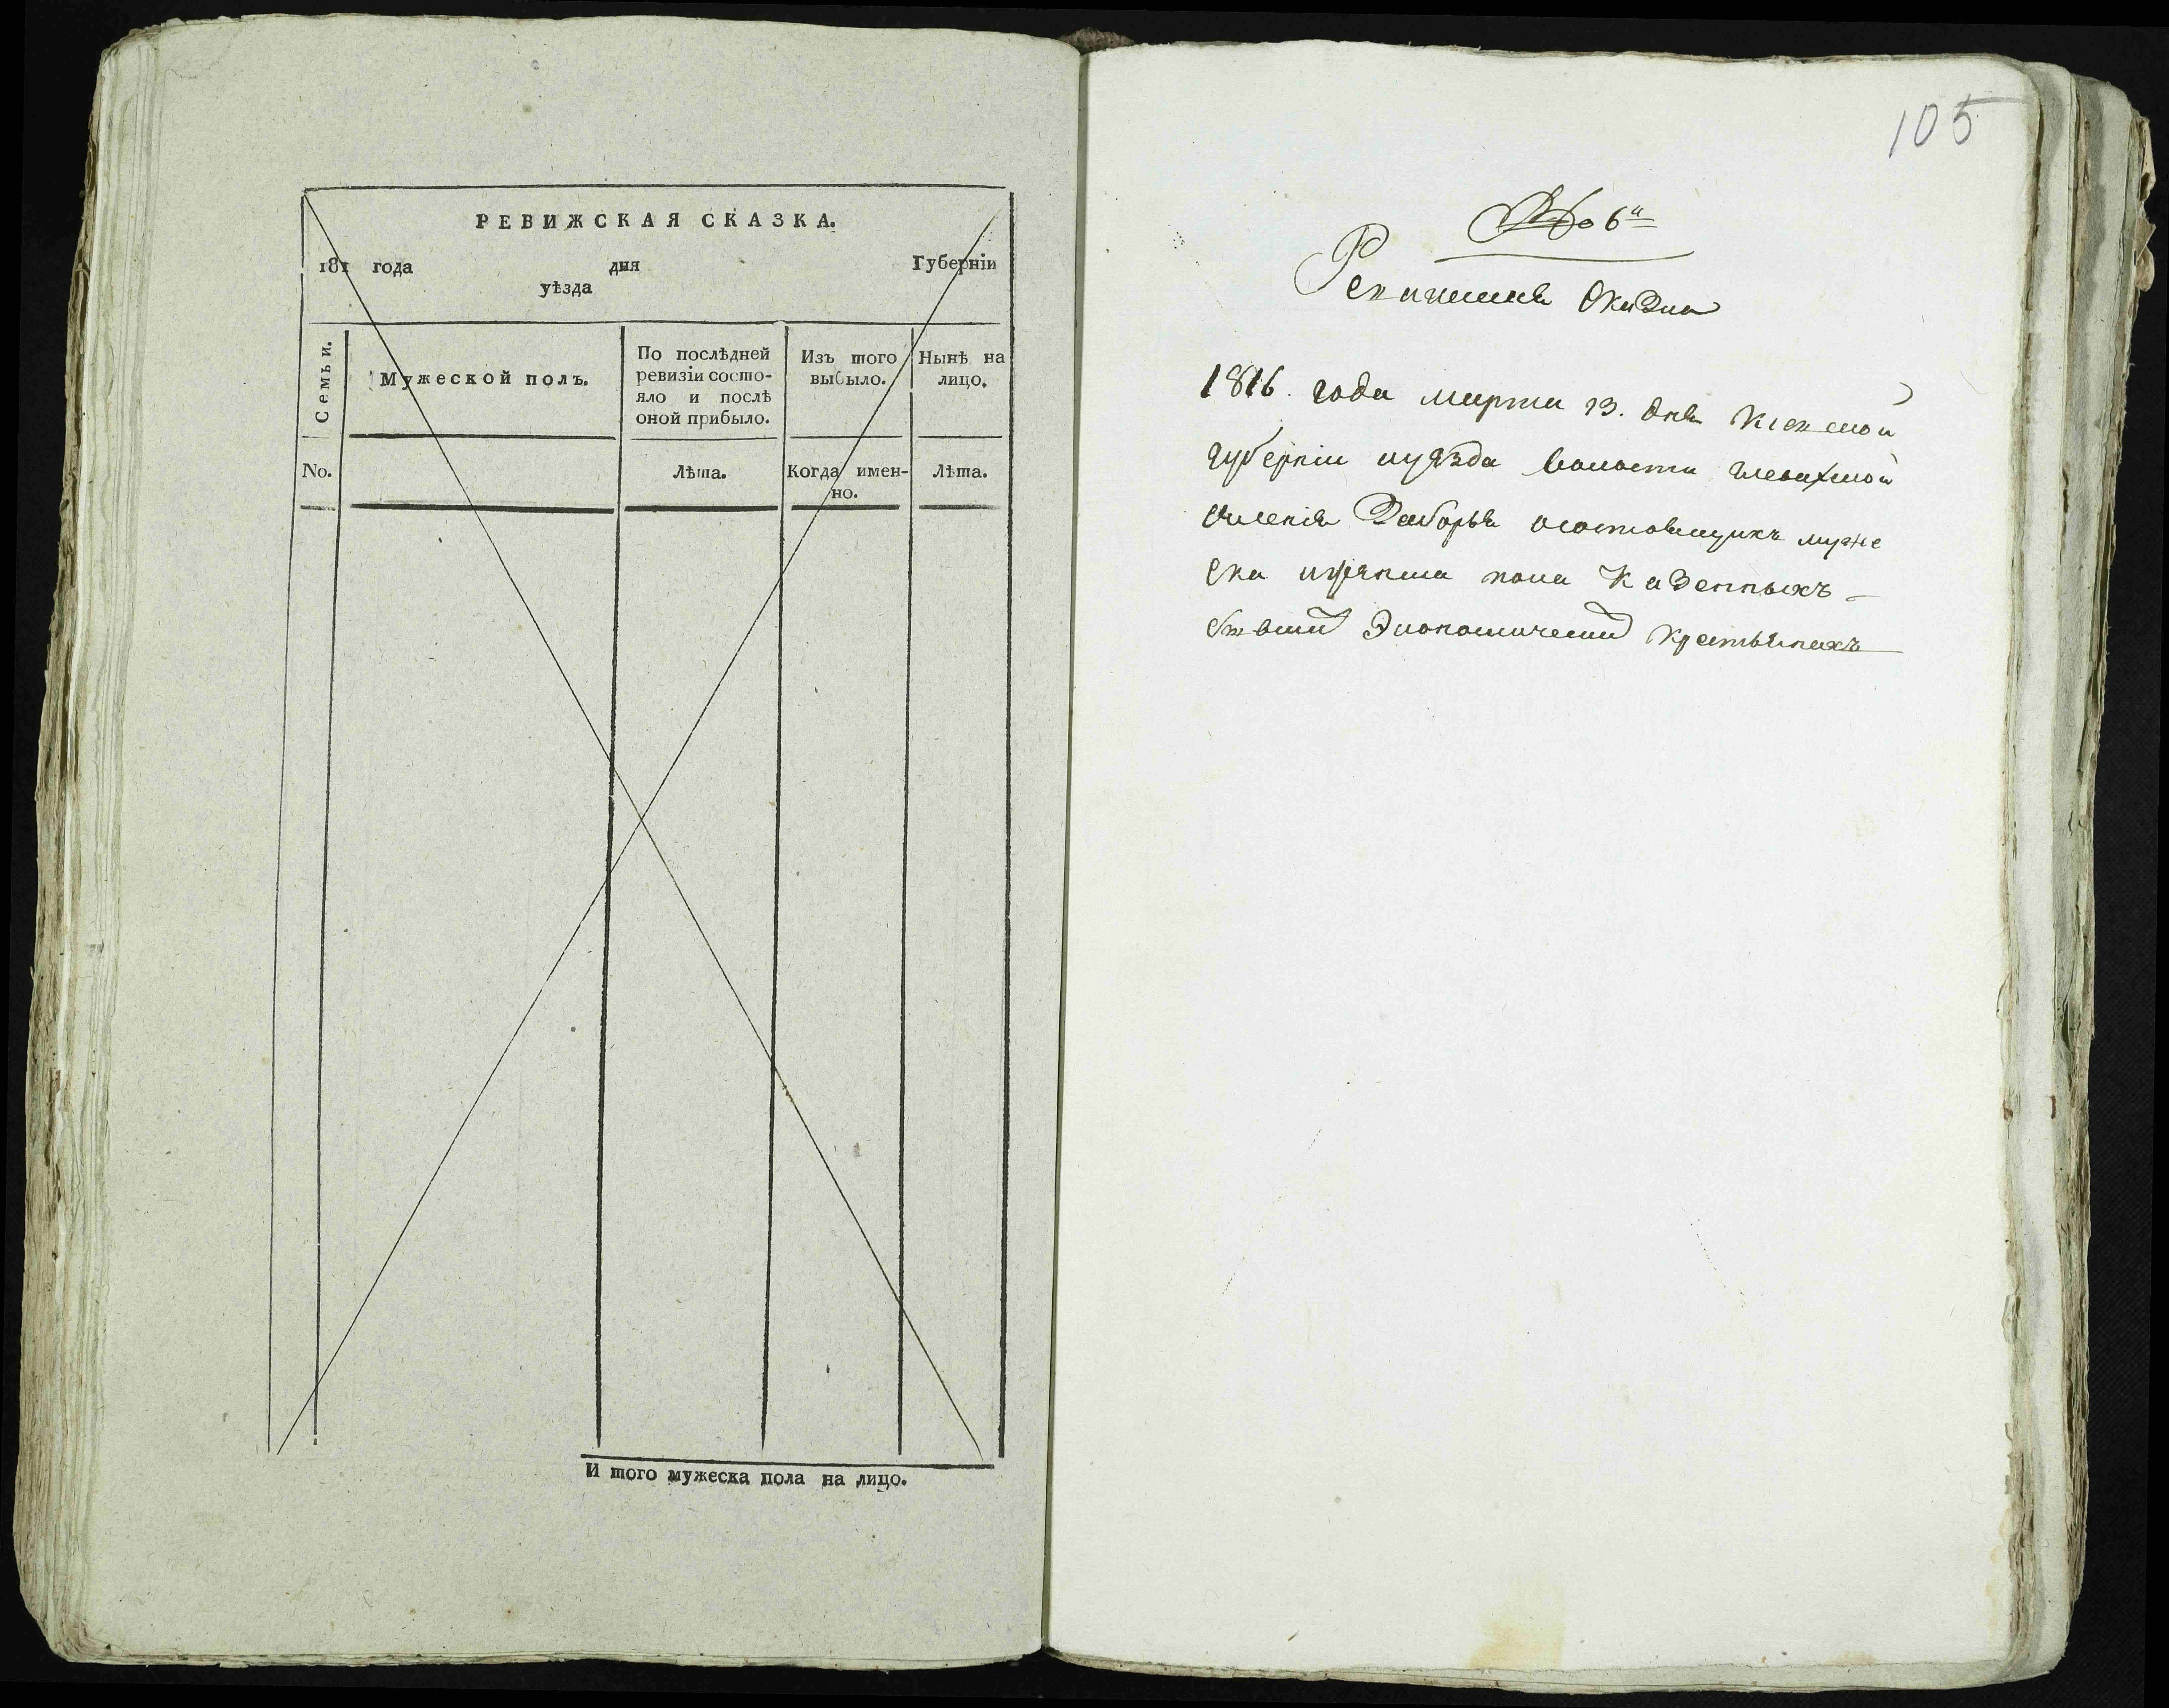 РЕВИЖСКАЯ СКАЗКА.
181 года дня Губерніи
уѣзда
Семьи.
Мужеской полъ.
По послѣдней
ревизіи состо-
яло и послѣ
оной прибыло.
Изъ того
выбыло.
Нынѣ на
лицо.
No.
Лѣта.
Когда имен-
но.
Лѣта.
И того мужеска пола на лицо.
105
№ 6й
Ревижская Сказка
1816. года марта 13. дня Кіевской
губерніи иуѣзда волости глевахской
селенія Заборья осостоящихъ муже
ска иженска пола Казенныхъ
бывши Экономически Крестьянахъ